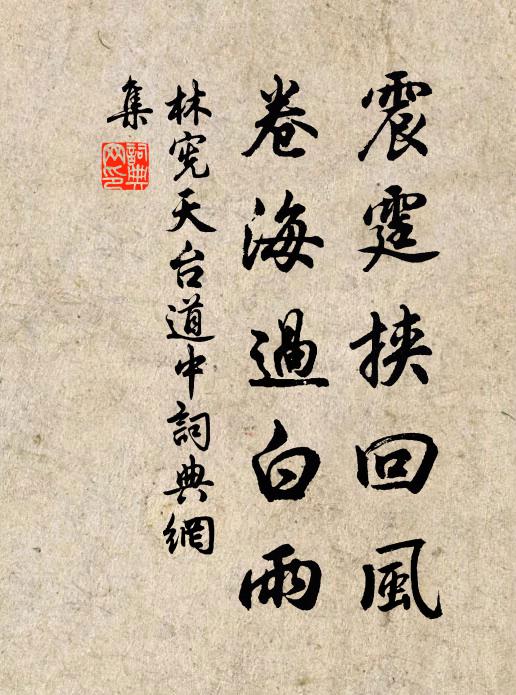 震霆挾回風
卷海過白雨
林宪天台道中詞典網
集
詞典網印